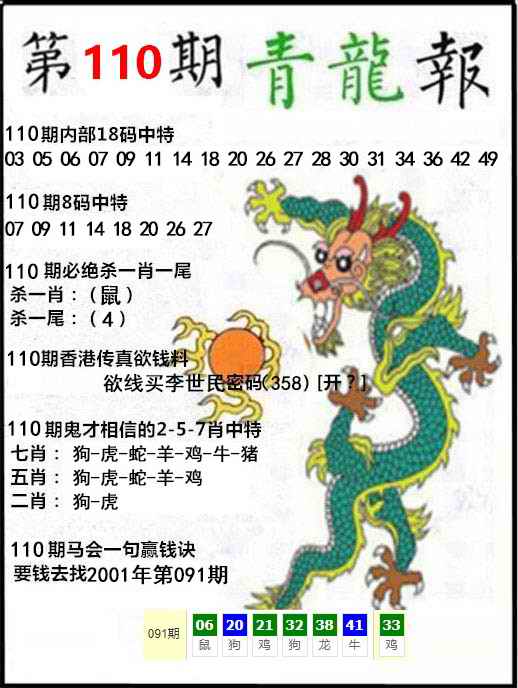 第110期青龍報
110期内部18码中特
03 05 06 07 09 11 14 18 20 26 27 28 30 31 34 36 42 49
110期8码中特
07 09 11 14 18 20 26 27
110 期必绝杀一肖一尾
杀一肖：（鼠）
杀一尾：（4）
110期香港传真欲钱料
欲线买李世民密码(358) [开？]
110期鬼才相信的2-5-7肖中特
七肖： 狗-虎-蛇-羊-鸡-牛-猪
五肖： 狗-虎-蛇-羊-鸡
二肖： 狗-虎
110期马会一句赢钱诀
要钱去找2001年第091期
091期 06 20 21 32 38 41 33
鼠 狗 鸡 狗 龙 牛 鸡